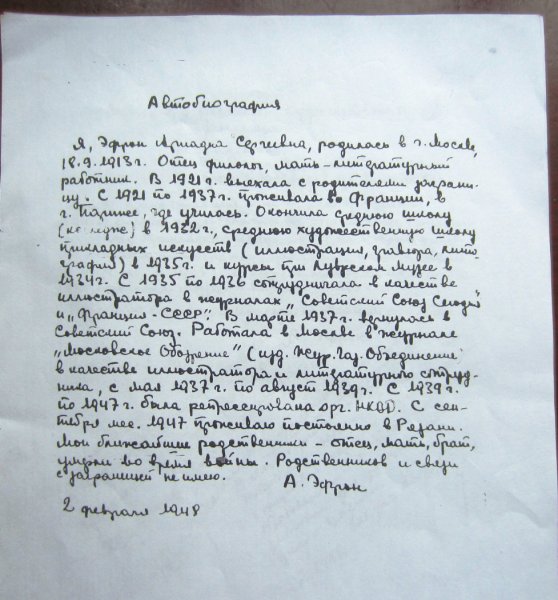 Автобиография
Я, Эфрон Ариадна Сергеевна, родилась в г. Москве,
18.9.1913г. Отец филолог, мать-литературный
работник. В 1921 г. выехала с родителями заграни-
цу. С 1921 по 1937 г. проживала во Франции, в
г. Париже, где училась. Окончила среднюю школу
(колледж) в 1932 г., среднюю художественную школу
прикладных искусств (иллюстрация, гравюра, лито-
графия) в 1935 г. и курсы при Луврском музее в
1934 г. С 1935 по 1936 сотрудничала в качестве
иллюстратора в журналах „Советский Союз Сегодня"
и „Франция - СССР". В марте 1937 г. вернулась в
Советский Союз. Работала в Москве в журнале
„Московское Обозрение" (изд. Жур. Газ. Объединение
в качестве иллюстратора и литературного сотруд-
ника, с мая 1937 г. по август 1939 г. С 1939 г.
по 1947 г. была репрессирована орг. НКВД. С сен-
тября мес. 1947 проживаю постоянно в Рязани.
Мои ближайшие родственники - отец, мать, брат,
умерли во время войны. Родственников и связи
с заграницей не имею. А. Эфрон
2 февраля 1948